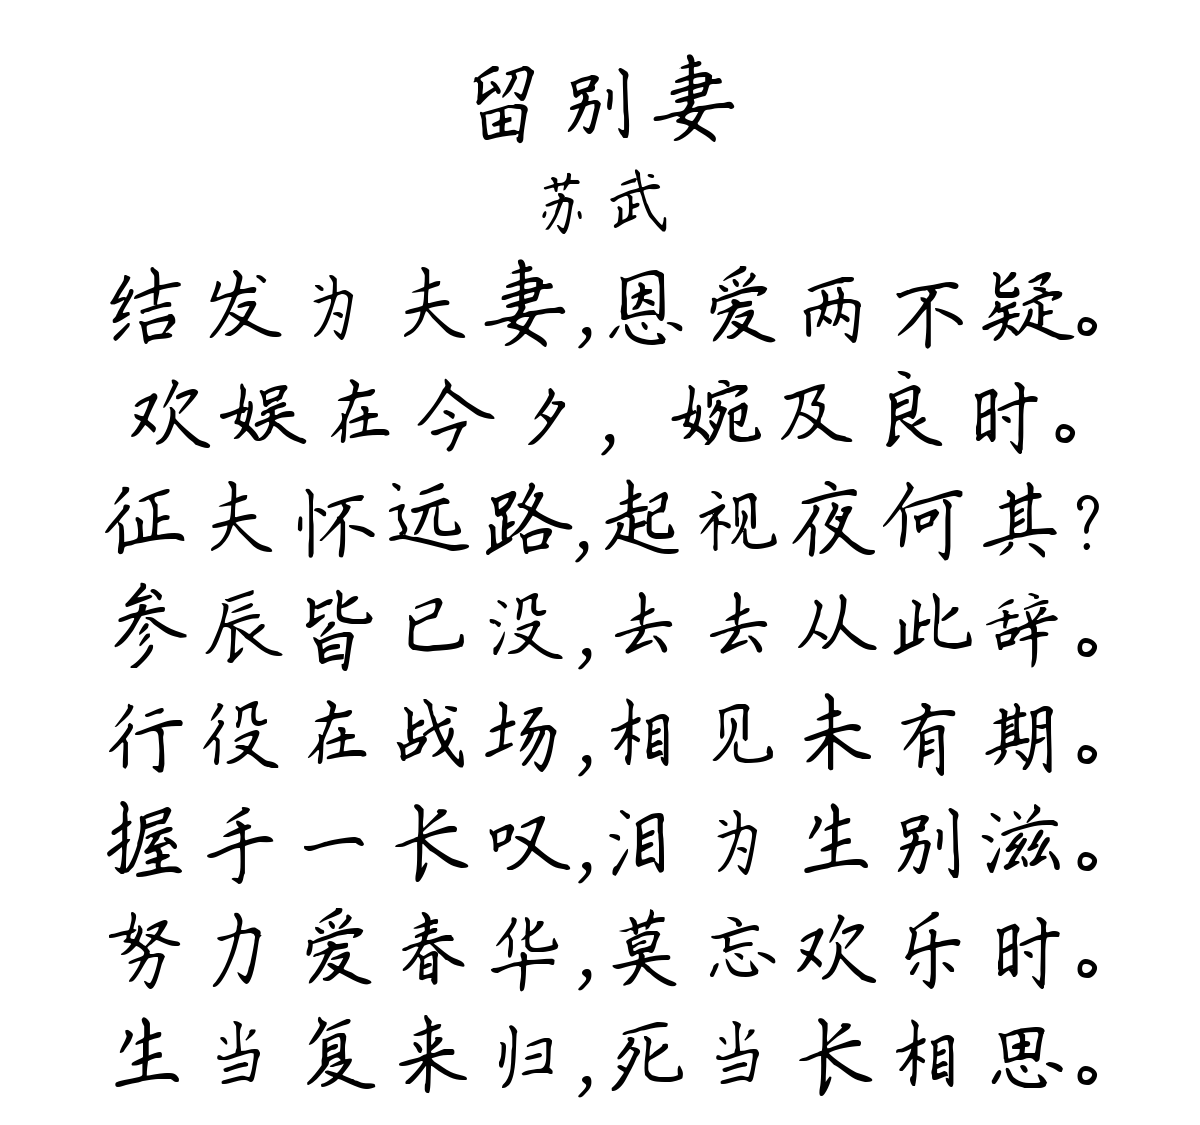 留别妻
苏武
结发为夫妻,恩爱两不疑。
欢娱在今夕,婉及良时。
征夫怀远路,起视夜何其?
参辰皆已没,去去从此辞。
行役在战场,相见未有期。
握手一长叹,泪为生别滋。
努力爱春华,莫忘欢乐时。
生当复来归,死当长相思。